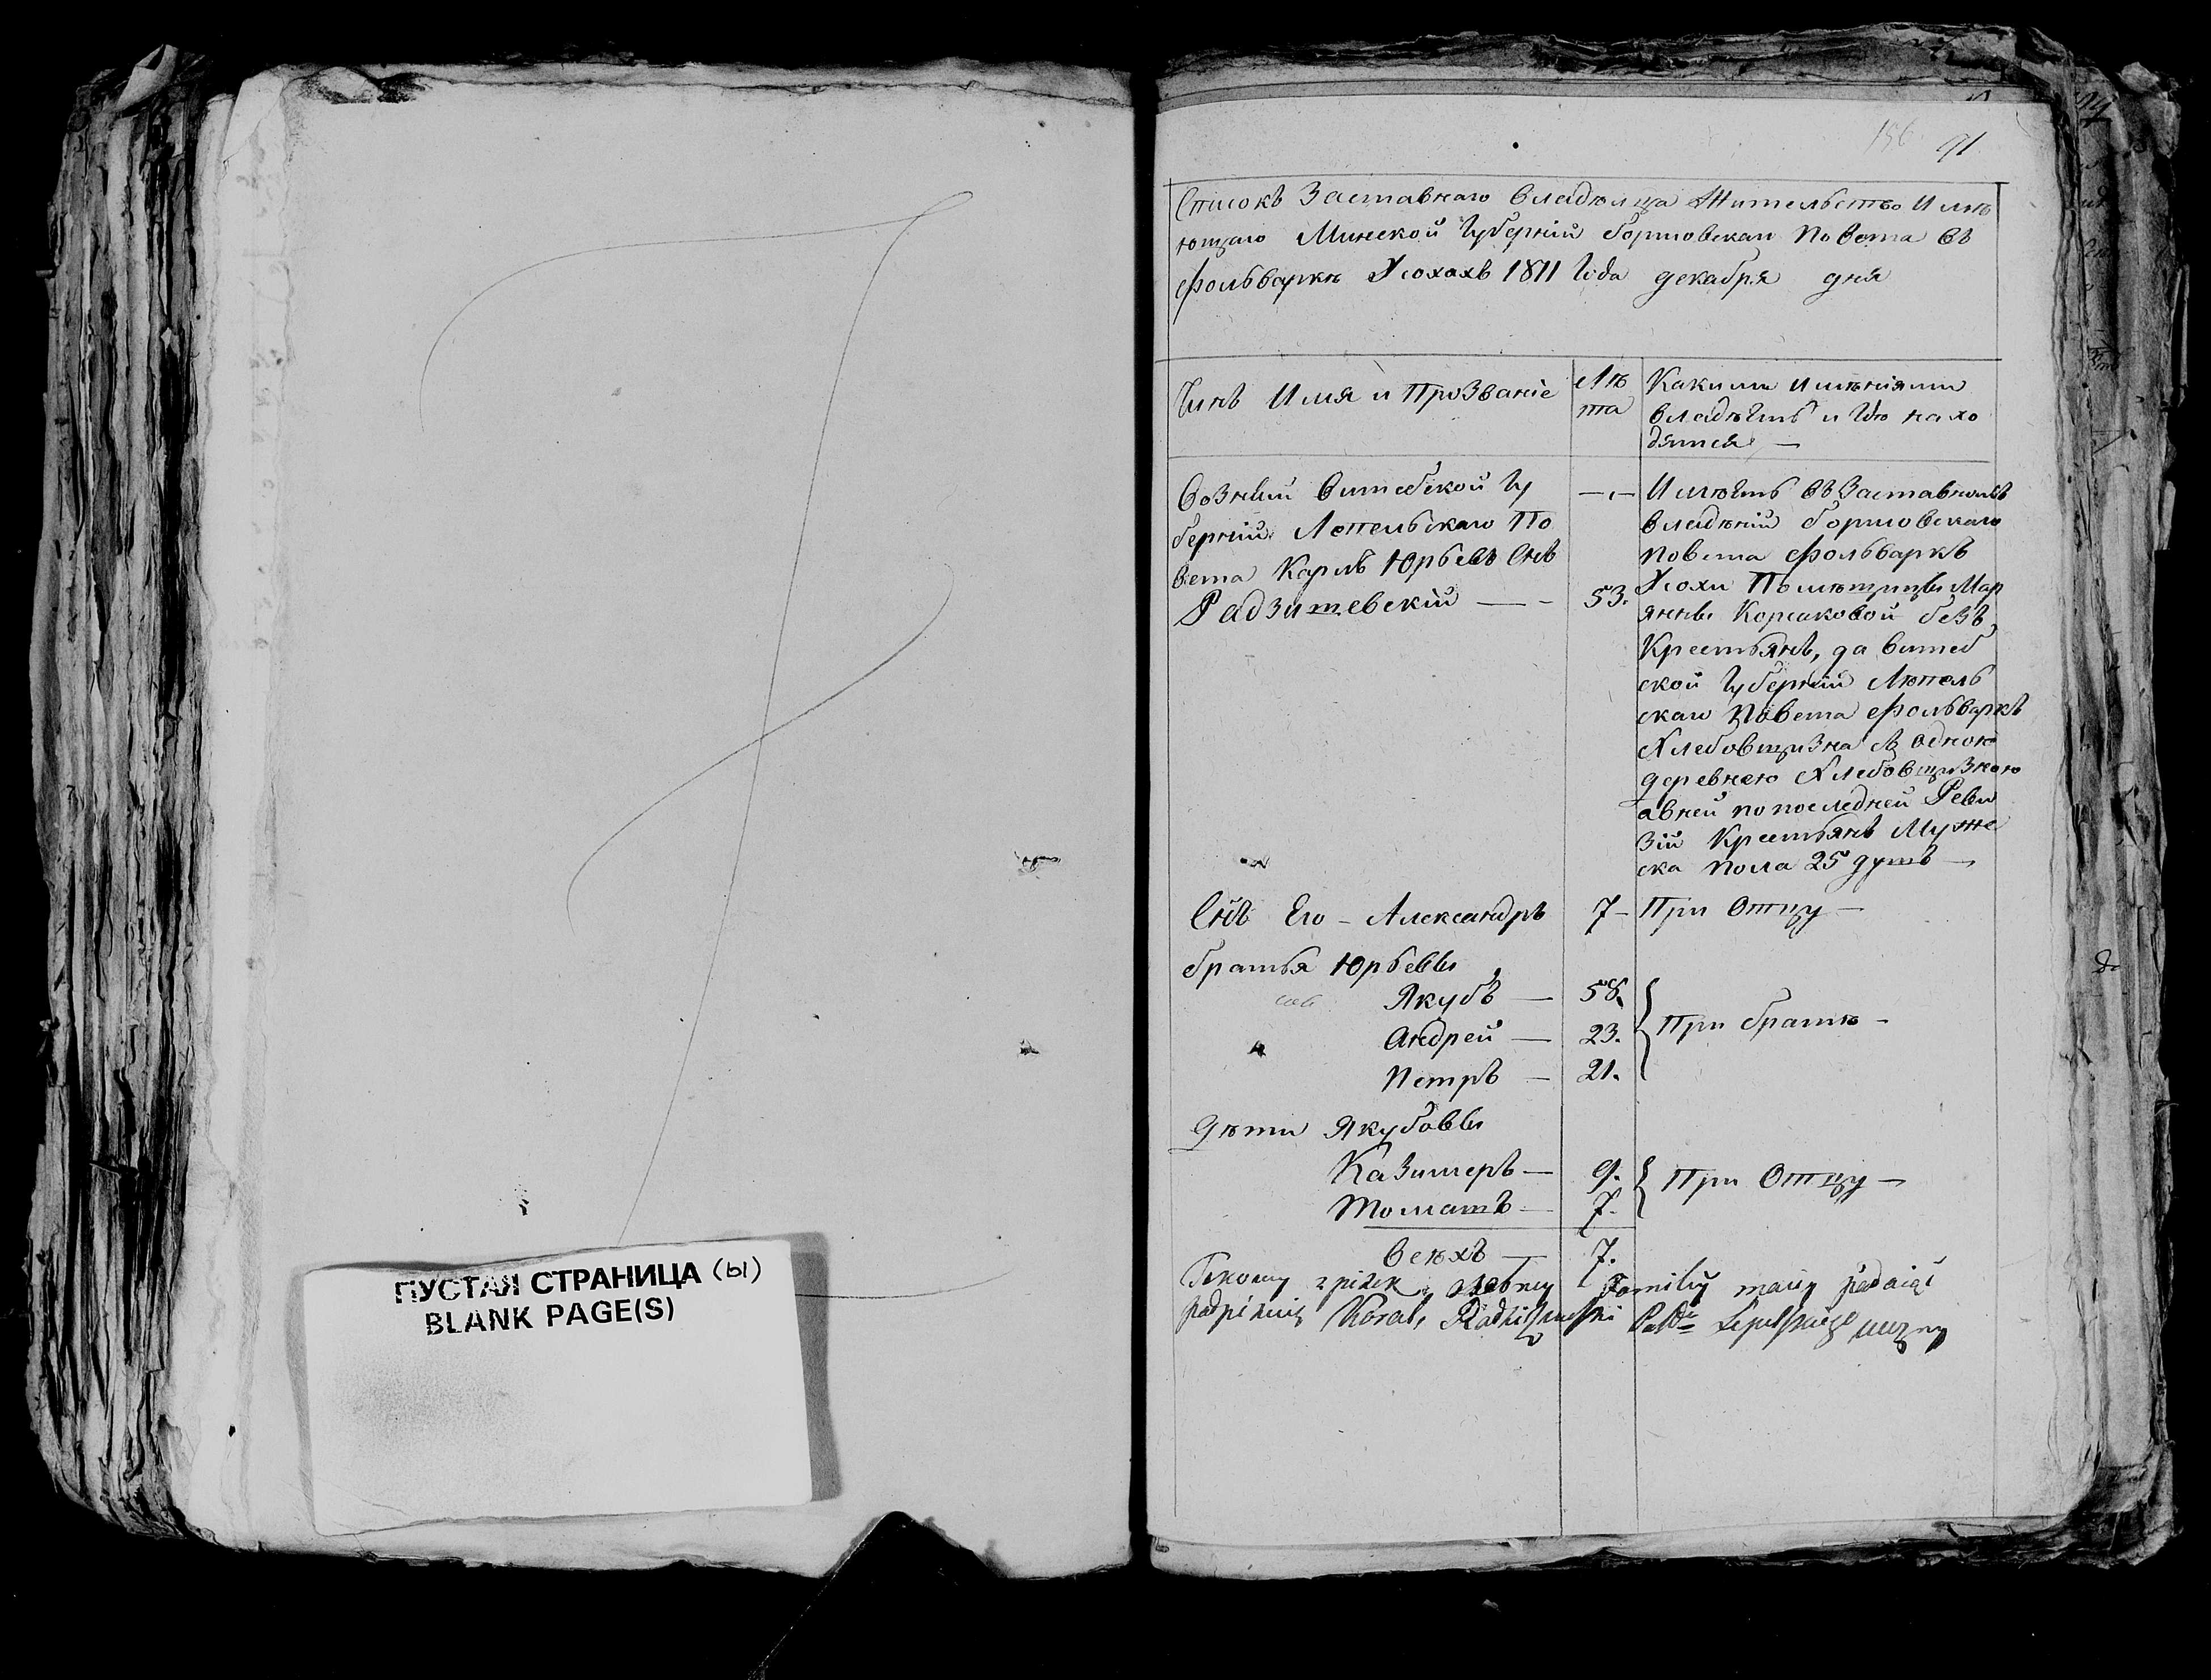 ПУСТАЯ СТРАНИЦА (ы)
BLANK PAGE(S)
156 91
Списокъ Заставнаго владѣльца Жительство Имѣ
ющаго Минской Губерніи борисовскаго Повета въ
фольваркѣ Усохахъ 1811 Года декабря дня
Чинъ Имя и Прозваніе
Лѣ
та
Какими имѣніями
владѣетъ и Где нахо
дятся —
Возный витебской Гу
берніи Лепельскаго По
вета Карлъ Юрьевъ Снъ
Радзишевскій — - 53.
Имѣетъ въ Заставномъ
владѣніи борисовскаго
повета фольваркъ
Усохи Помѣщицы Мар
янны Корсаковой безъ
Крестьянъ, да витеб
ской Губерніи Лѣпель
скаго Повета фольваркъ
Хлебовщизна съ одною
деревнею Хлебовщизною
авней по последней Реви
зіи Крестьянъ Муже
ска пола 25 душъ —
Снъ Его - Александръ 7- При Отцу —
братья Юрьевы
Якубъ — 58.
Андрей — 23. При братѣ -
Петръ — 21.
Дѣти Якубовы
Казимеръ — 9. При Отцу —
Томашъ — 7.
Всѣхъ — 7.
Familij moiey podaiąc
podpisuię Karol Radziszewski Lepelskiego